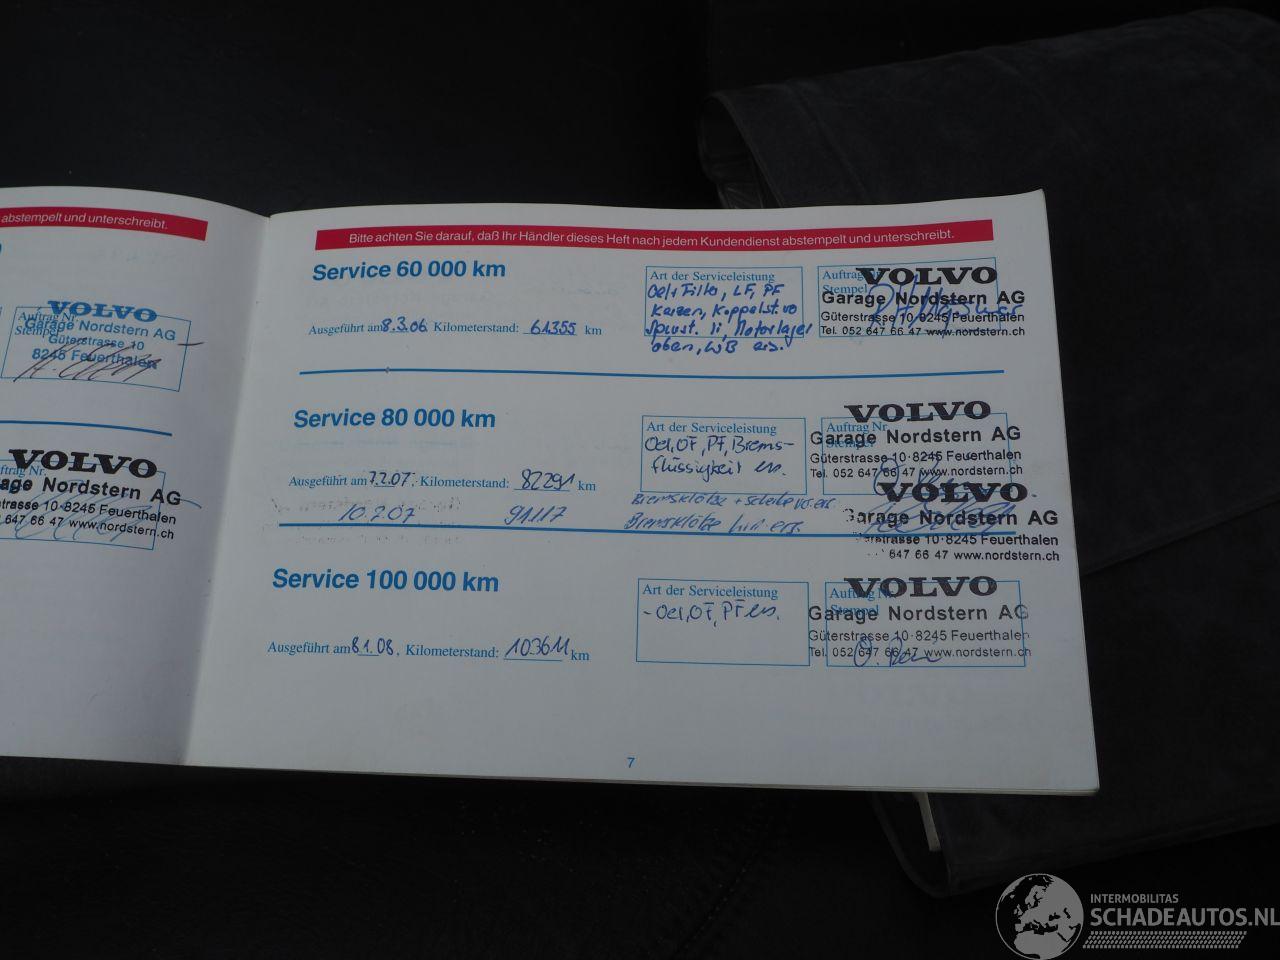 abstempelt und unterschreibt.
VOLVO
Auftrag Nr.
Stempel
Garage Nordstern AG
Güterstrasse 10
8245 Feuerthalen
VOLVO
ftrag Nr.
ge Nordstern AG
strasse 10·8245 Feuerthalen
647 66 47 www.nordstern.ch
Bitte achten Sie darauf, daß Ihr Händler dieses Heft nach jedem Kundendienst abstempelt und unterschreibt.
Service 60 000 km
Ausgeführt am 8.3.06 Kilometerstand: 61355 km
Art der Serviceleistung
Oel+Filter, LF, PF
Kerzen, Koppelst. vo
Spurst. li, Motorlager
oben, WB ers.
Auftrag Nr.
Stempel
VOLVO
Garage Nordstern AG
Güterstrasse 10·8245 Feuerthalen
Tel. 052 647 66 47 www.nordstern.ch
Service 80 000 km
Ausgeführt am 7.2.07. Kilometerstand: 82291 km
10.7.07 91117
Art der Serviceleistung
Oel, OF, PF, Brems-
flüssigkeit ers.
Bremsklötze + Scheibe vo. ers.
Bremsklötze hin. ers.
VOLVO
Auftrag Nr.
Stempel
Garage Nordstern AG
Güterstrasse 10·8245 Feuerthalen
Tel. 052 647 66 47 www.nordstern.ch
VOLVO
Garage Nordstern AG
strasse 10·8245 Feuerthalen
647 66 47 www.nordstern.ch
Service 100 000 km
Ausgeführt am 8.1.08. Kilometerstand: 103611 km
Art der Serviceleistung
- Oel, OF, PF ers.
VOLVO
Auftrag Nr.
Stempel
Garage Nordstern AG
Güterstrasse 10·8245 Feuerthalen
Tel. 052 647 66 47 www.nordstern.ch
7
INTERMOBILITAS
SCHADEAUTOS.NL